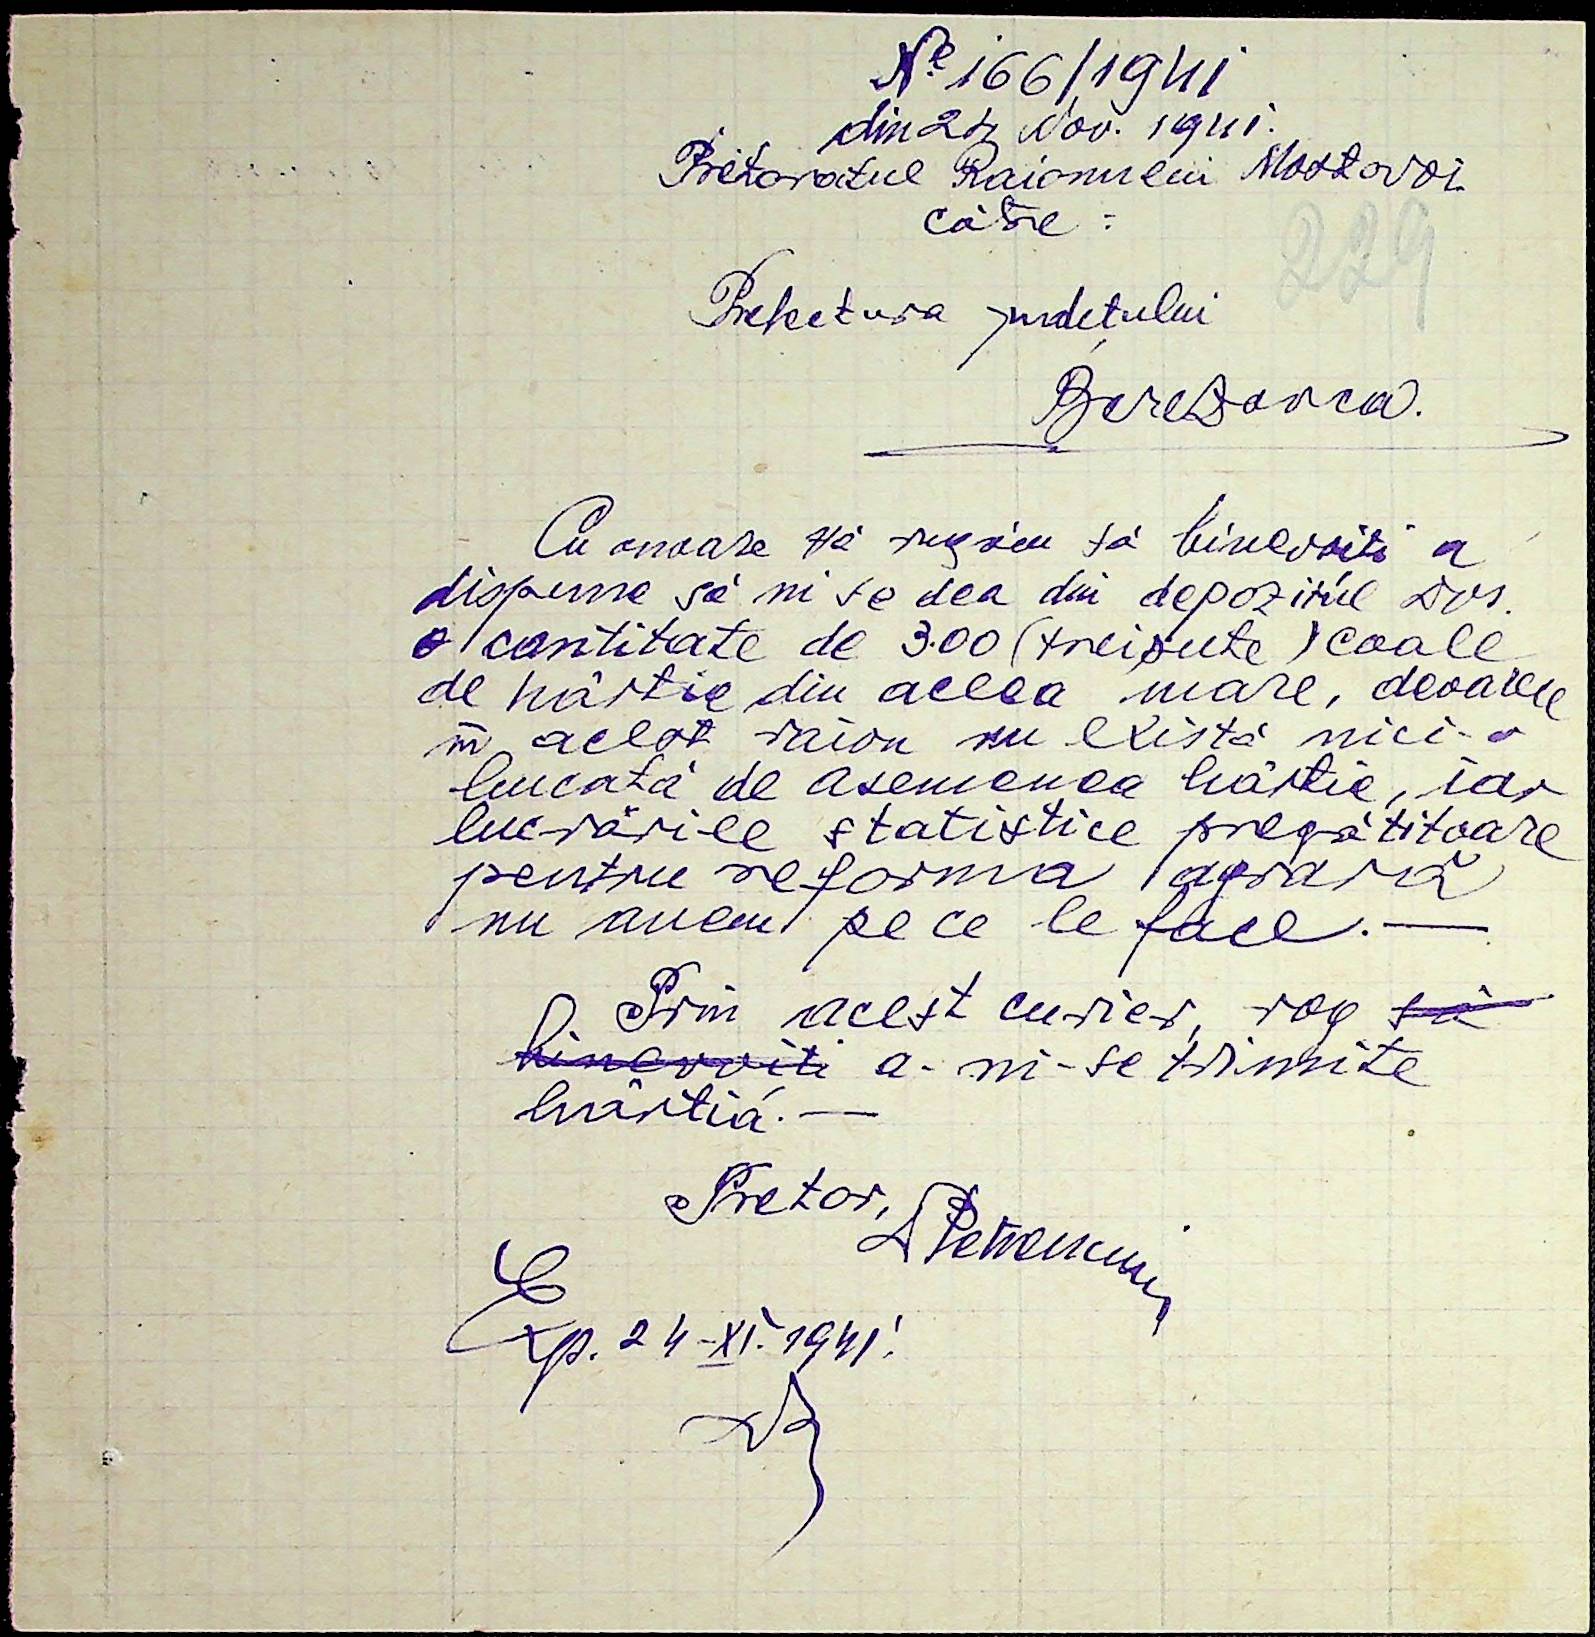 № 166/1941
din 24 Nov. 1941.
Pretoratul Raionului Mostovoi
către :
229
Prefectura județului
Beresovca.
Cu onoare vă rugăm să binevoiți a
dispune să ni se dea din depozitul Dvs.
o cantitate de 3.00 (treisute) coale
de hârtie din aceea mare, deoarece
în acest raion nu există nici-o
bucată de asemenea hârtie, iar
lucrările statistice pregătitoare
pentru reforma agrară
nu avem pe ce le face. —
Prin acest curier, rog să
binevoiti a-ni-se trimite
hârtiă. —
Pretor,
Exp. 24-XI-1941.